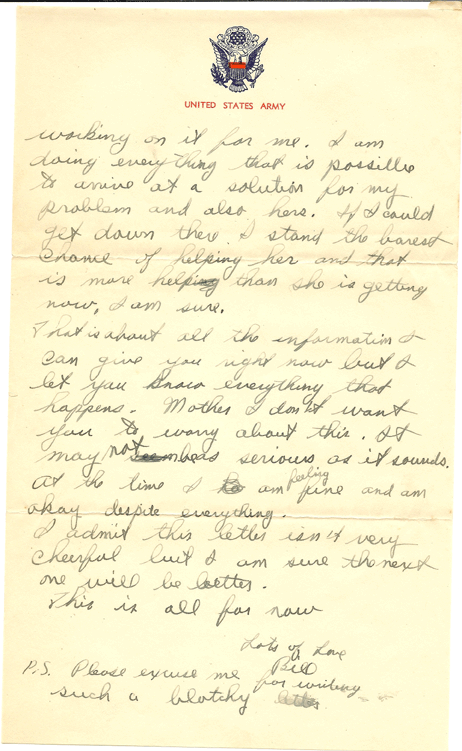 UNITED STATES ARMY
working on it for me. I am
doing everything that is possible
to arrive at a solution for my
problem and also hers. If I could
get down there I stand the barest
chance of helping her and that
is more helping than she is getting
now, I am sure.
That is about all the information I
can give you right now but I
let you know everything that
happens. Mother I don't want
you to worry about this. It
may not be as serious as it sounds.
At the time I am feeling fine and am
okay despite everything.
I admit this letter isn't very
cheerful but I am sure the next
one will be better.
This is all for now
Lots of Love
Bill
P.S. Please excuse me for writing
such a blotchy letter